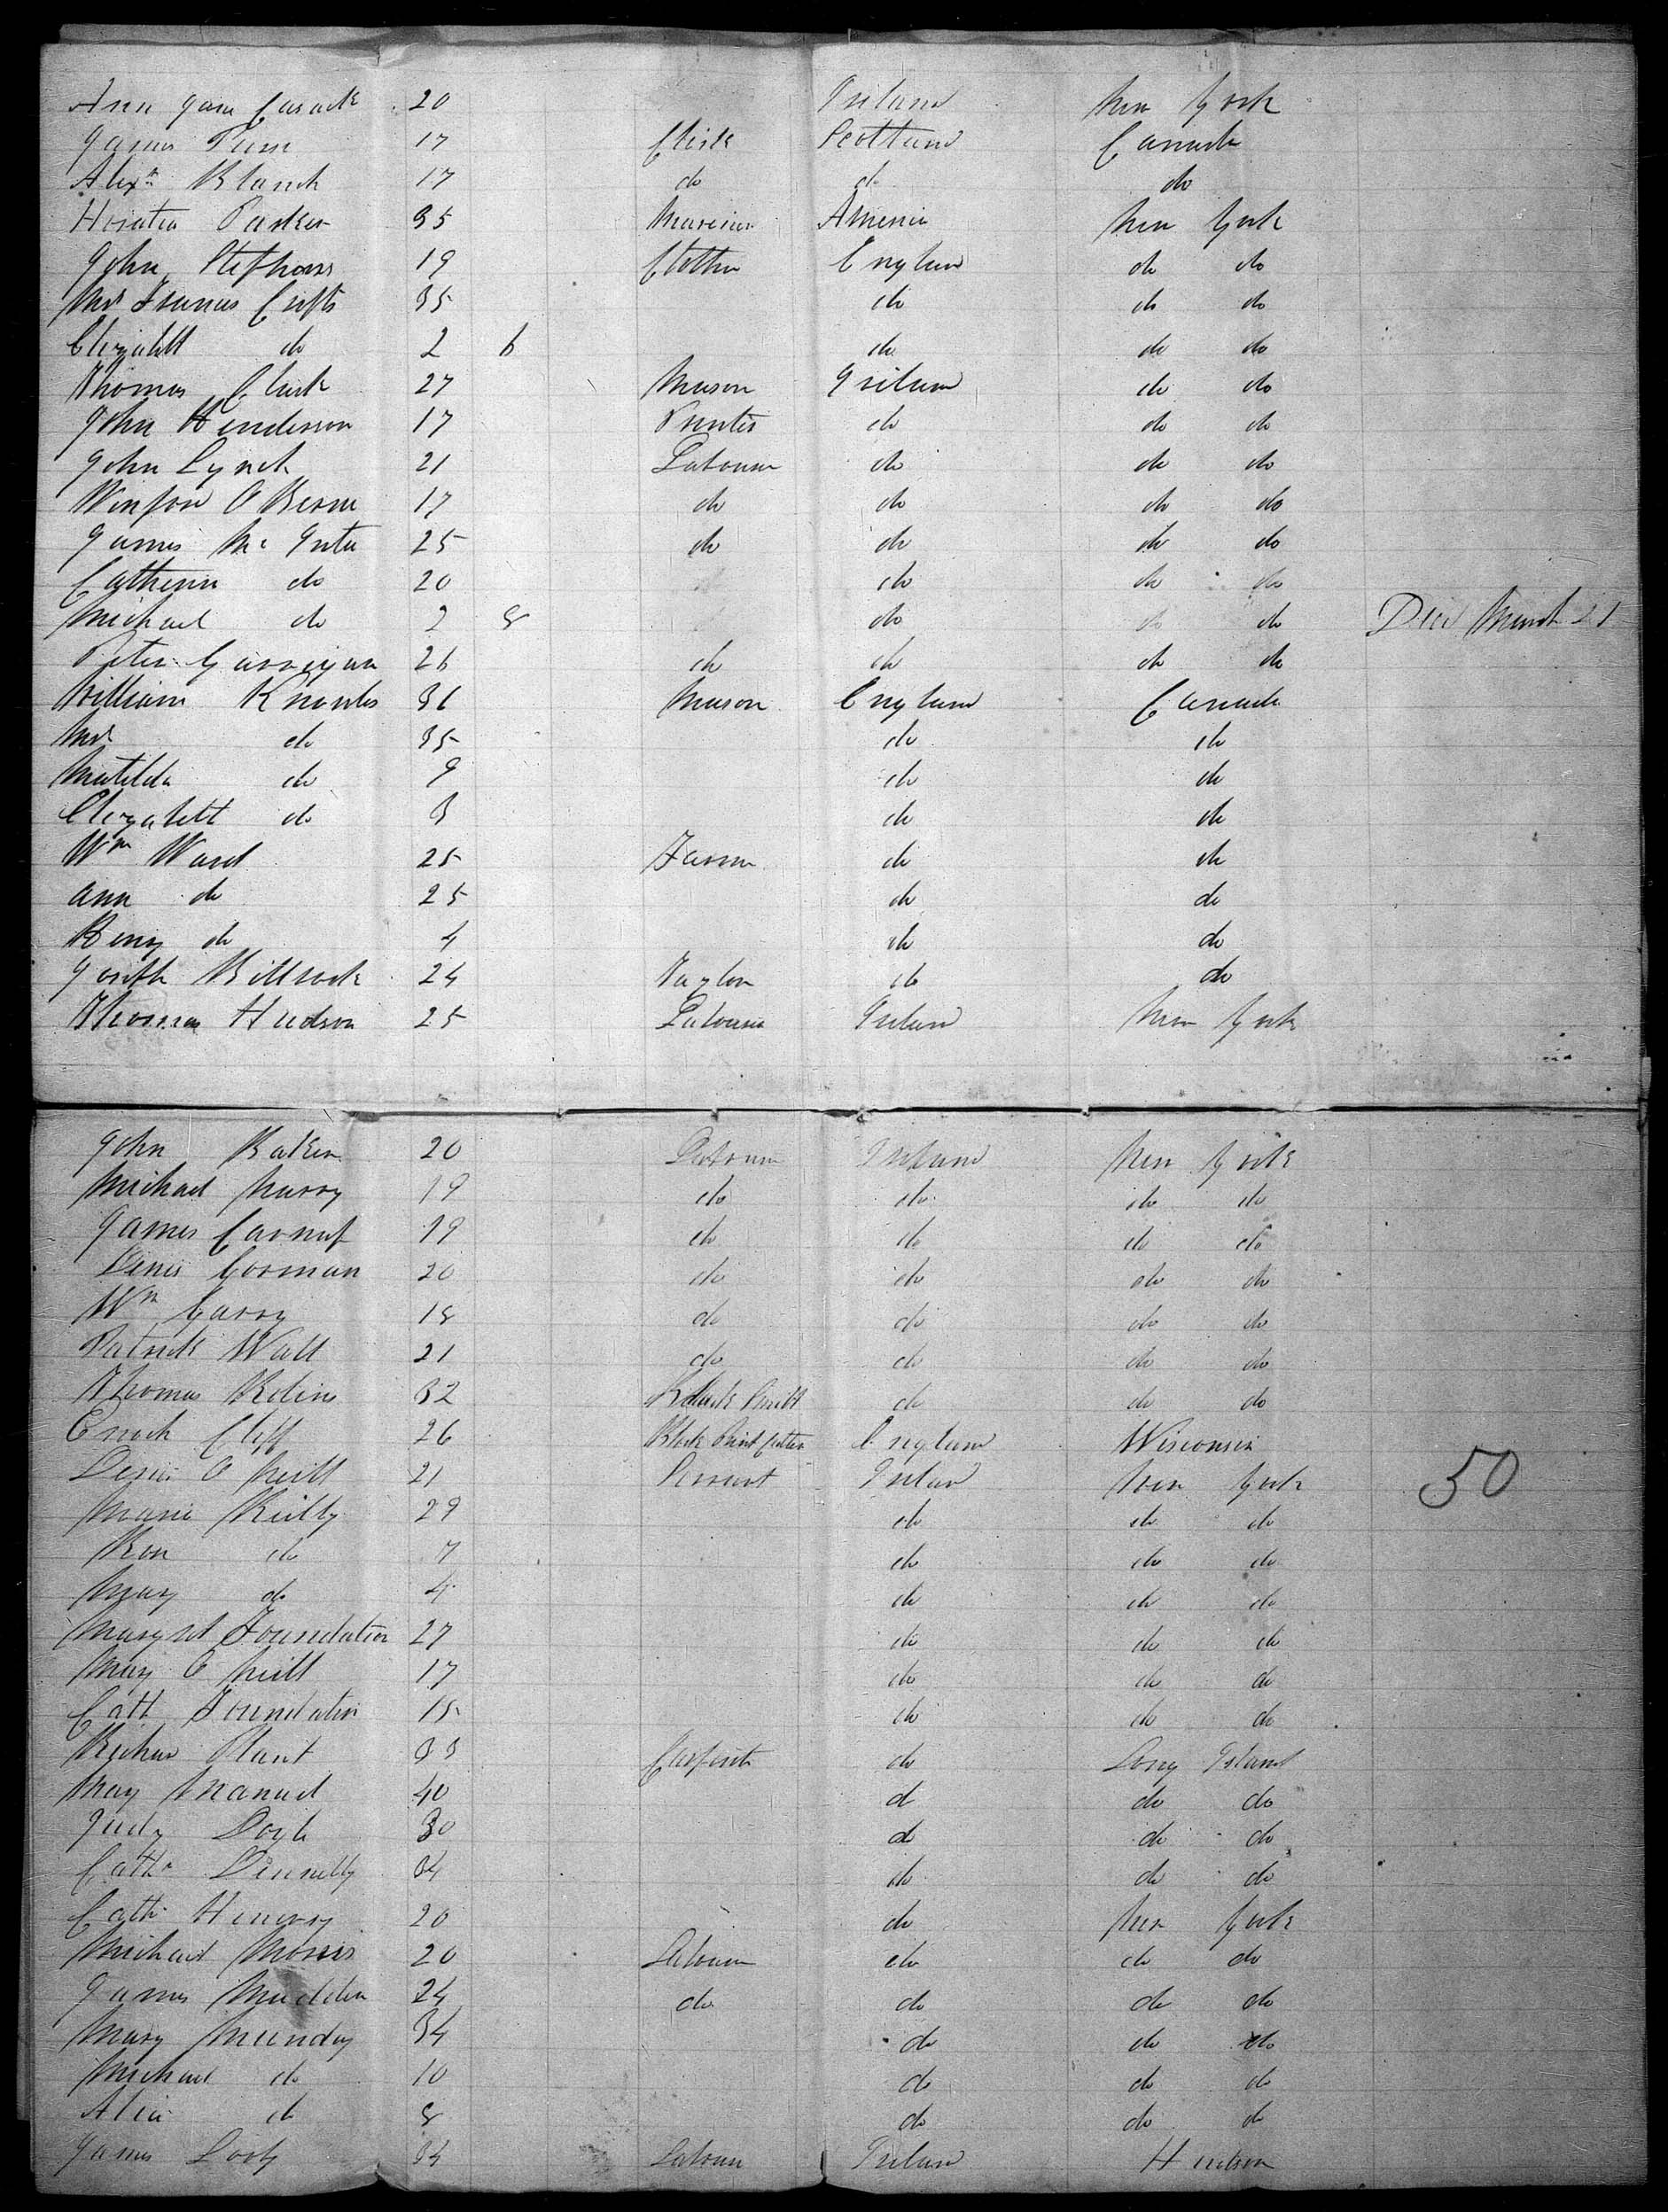 Ann Jane 20 Ireland New York
James 17 Clerk Scotland Canada
Alexr Blanch 17 do do do
Horatio Parker 35 Mariner America New York
John Stephens 19 Clothier England do do
Mrs Frances Crofts 35 do do do
Elizabeth do 2 6 do do do
Thomas Clark 27 Mason Ireland do do
John Henderson 17 Printer do do do
John Lynch 21 Labourer do do do
O Berne 17 do do do do
James Mc 25 do do do do
Catherine do 20 do do do
Michael do 2 8 do do do Died March 21
Peter Garrigan 26 do do do do
William Knowles 36 Mason England Canada
Mrs do 35 do do
Matilda do 9 do do
Elizabeth do 3 do do
Wm Ward 25 Farmer do do
Ann do 25 do do
Benj do 4 do do
Joseph 24 Taylor do do
Thomas Hudson 25 Labourer Ireland New York
John Baker 20 Labourer Ireland New York
Michael 19 do do do do
James 19 do do do do
Denis Gorman 20 do do do do
Wm Garry 18 do do do do
Patrick Wall 21 do do do do
Thomas 32 Black Smith do do do
Enoch Cliff 26 Block Print Cutter England Wisconsin
Denis O Neill 21 Servant Ireland New York
50
Maria Reilly 29 do do do
do 7 do do do
Mary do 4 do do do
Margret Foundation 27 do do do
Mary O Neill 17 do do do
Cath Foundation 15 do do do
Richard Plant 33 Carpenter do Long Island
Mary Manuel 40 d do do
Judy Doyle 30 do do do
Cathe Dennelly 34 do do do
Cath 20 do New York
Michael Morris 20 Labourer do do do
James Madden 24 do do do do
Mary Munday 34 do do do
Michael do 10 do do do
Alice do 8 do do do
James 34 Labourer Ireland Hudson